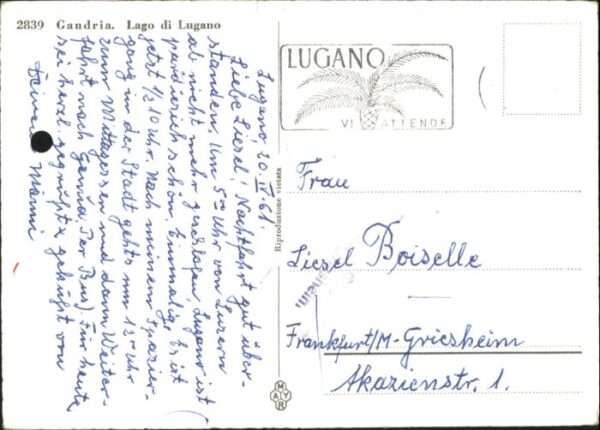 2839 Gandria. Lago di Lugano
Lugano 20.IV.61.
Liebe Liesel! Nachtfahrt gut über-
standen. Um 5 00 Uhr von Luzern
ab nicht mehr geschlafen. Lugano ist
paradiesisch schön. Einmalig. Es ist
jetzt 1/2 10 Uhr. Nach meinem Spazier-
gang in der Stadt gehts um 12 00 Uhr
zum Mittagessen und dann Weiter-
fahrt nach Genua. (Per Bus). Für heute
sei herzl. gegrüßt u. geküßt von
Deinem Manni
LUGANO
VI ATTENDE
Riproduzione vietata
Frau
Liesel Boiselle
Frankfurt/M-Griesheim
Akazienstr. 1.
MAYR